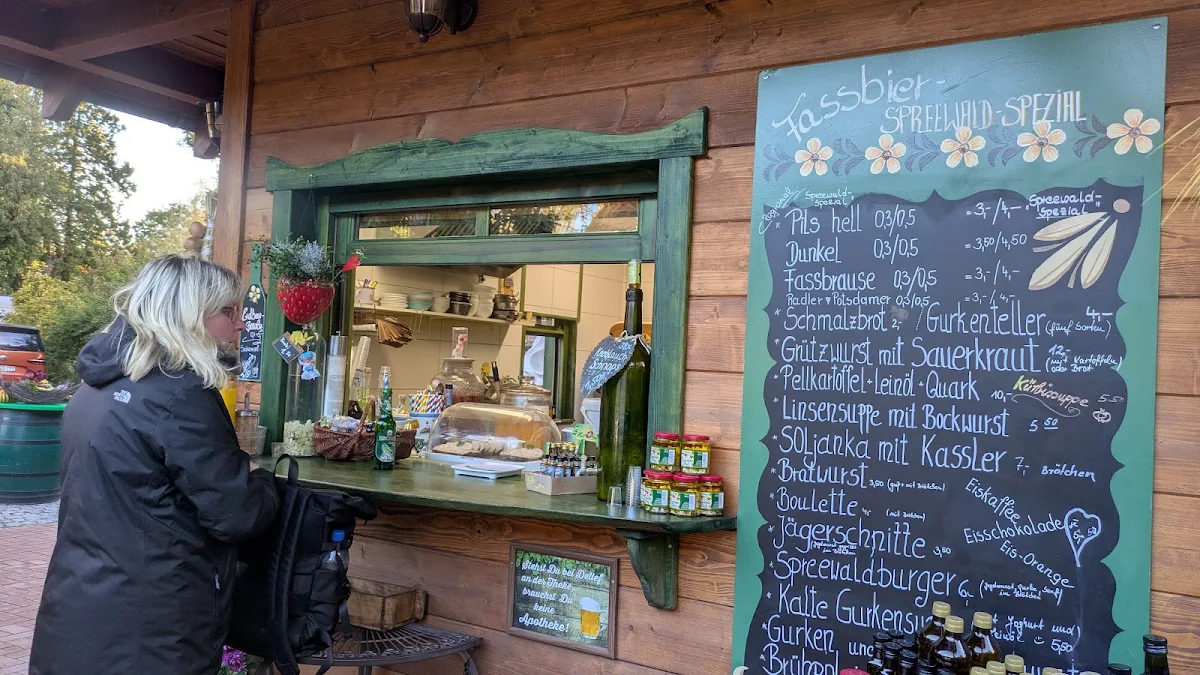 Fassbier-
SPREEWALD-SPEZIAL
Spreewald-
Spezial
Pils hell 0,3/0,5 = 3,-/4,- Spreewald-
Spezial
Dunkel 0,3/0,5 = 3,50/4,50
Fassbrause 0,3/0,5 = 3,-/4,-
Radler + Potsdamer 0,3/0,5 = 3,-/4,-
* Schmalzbrot 2,- Gurkenteller (fünf Sorten) 4,-
* Grützwurst mit Sauerkraut 12,- (mit Kartoffeln)
oder Brot
* Pellkartoffel + Leinöl + Quark 10,-
Kürbissuppe 5,50
* Linsensuppe mit Bockwurst 5 50
* Soljanka mit Kassler 7,- Brötchen
* Bratwurst 3,50
* Boulette
* Jägerschnitte 3,80
Eiskaffee
Eisschokolade
Eis-Orange
5,50
* Spreewaldburger 6,-
* Kalte Gurkensu
Joghurt und
5,50
* Gurken und
* Brühpol
Knoblauch
Stehst Du bei Detlef
an der Theke,
brauchst Du
keine
Apotheke!
THE
NORTH
FACE